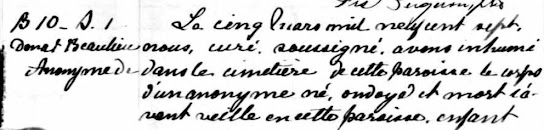 B 10 - S. 1
Donat Beaulieu
Anonyme de
Le cinq Mars mil neuf cent sept,
nous, curé, soussigné, avons inhumé
dans le cimetière de cette paroisse le corps
d'un anonyme né, ondoyé et mort l'a-
vant veille en cette paroisse, enfant